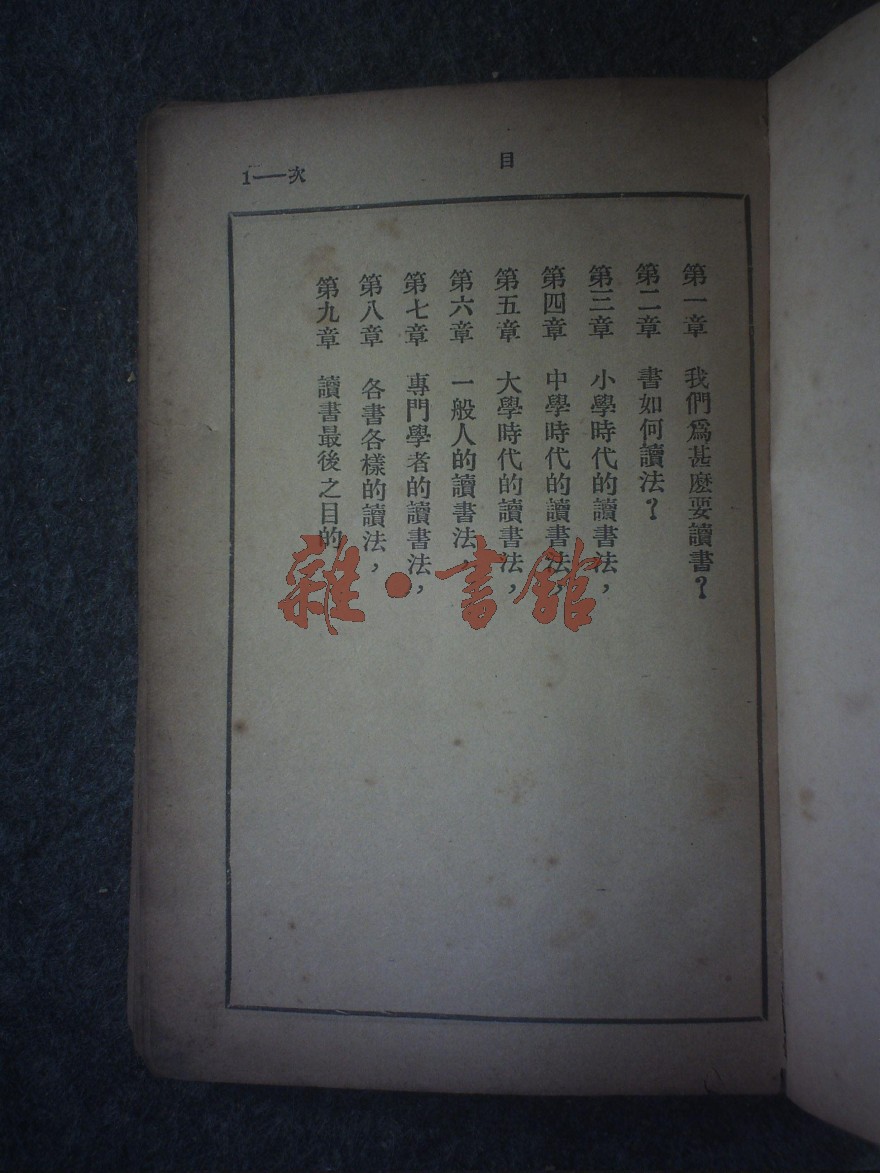 目
次——1
第一章 我們爲甚麽要讀書？
第二章 書如何讀法？
第三章 小學時代的讀書法，
第四章 中學時代的讀書法，
第五章 大學時代的讀書法，
第六章 一般人的讀書法，
第七章 專門學者的讀書法，
第八章 各書各樣的讀法，
第九章 讀書最後之目的
雜·書館